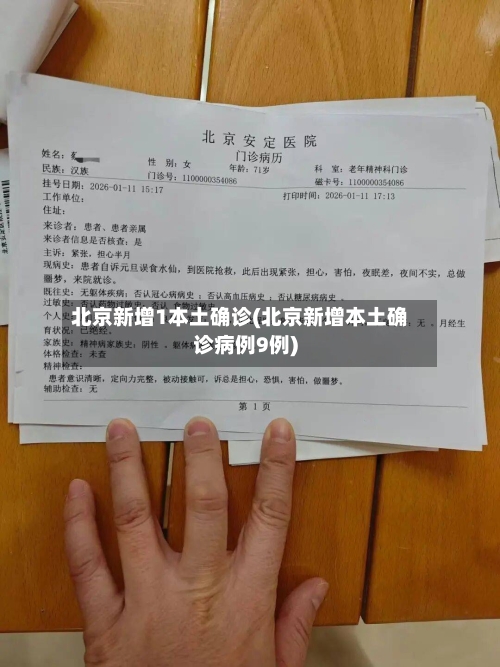 北京安定医院
门诊病历
姓名:
性 别:女
年龄:71岁
科 室:老年精神科门诊
民族:汉族
门诊号:1100000354086
磁卡号:1100000354086
挂号日期:2026-01-11 15:17
打印时间:2026-01-11 17:13
工作单位:
住址:
来诊者:患者、患者亲属
来诊者信息是否核查:是
主诉:紧张,担心半月
现病史:患者自诉元旦误食水仙,到医院抢救,此后出现紧张,担心,害怕,夜眠差,夜间不实,总做
噩梦,来院就诊。
既往史:无躯体疾病;否认冠心病病史;否认高血压病史;否认糖尿病病史
过敏史:否认药物过敏史;否认食物过敏史
个人史:
无、月经生
北京新增1本土确诊(北京新增本土确
诊病例9例)
育状况:已绝经。
家族史:精神病家族史:阴性、躯体
体格检查:未查
精神检查:
患者意识清晰,定向力完整,被动接触可,诉总是担心,恐惧,害怕,做噩梦。
辅助检查:无
第 1 页